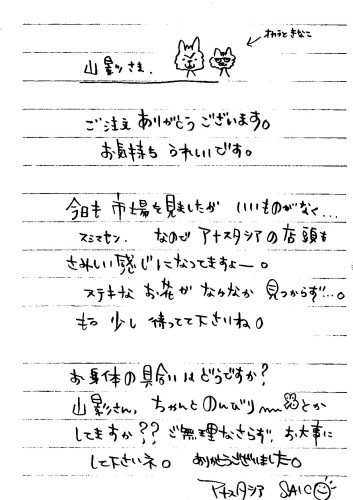 山影さま。
ご注文ありがとうございます。
お気持ち うれしいです。
今日も 市場を見ましたが いいものがなく…
スミマセン。 なので アナスタシアの店頭も
さみしい感じになってますよー。
ステキな お花が なかなか 見つからず…。
もう 少し 待ってて下さいね。
お身体の具合いはどうですか?
山影さん、ちゃんとのんびり〰とか
してますか?? ご無理なさらず、お大事に
して下さいネ。 ありがとうございました。
アナスタシア SAICO